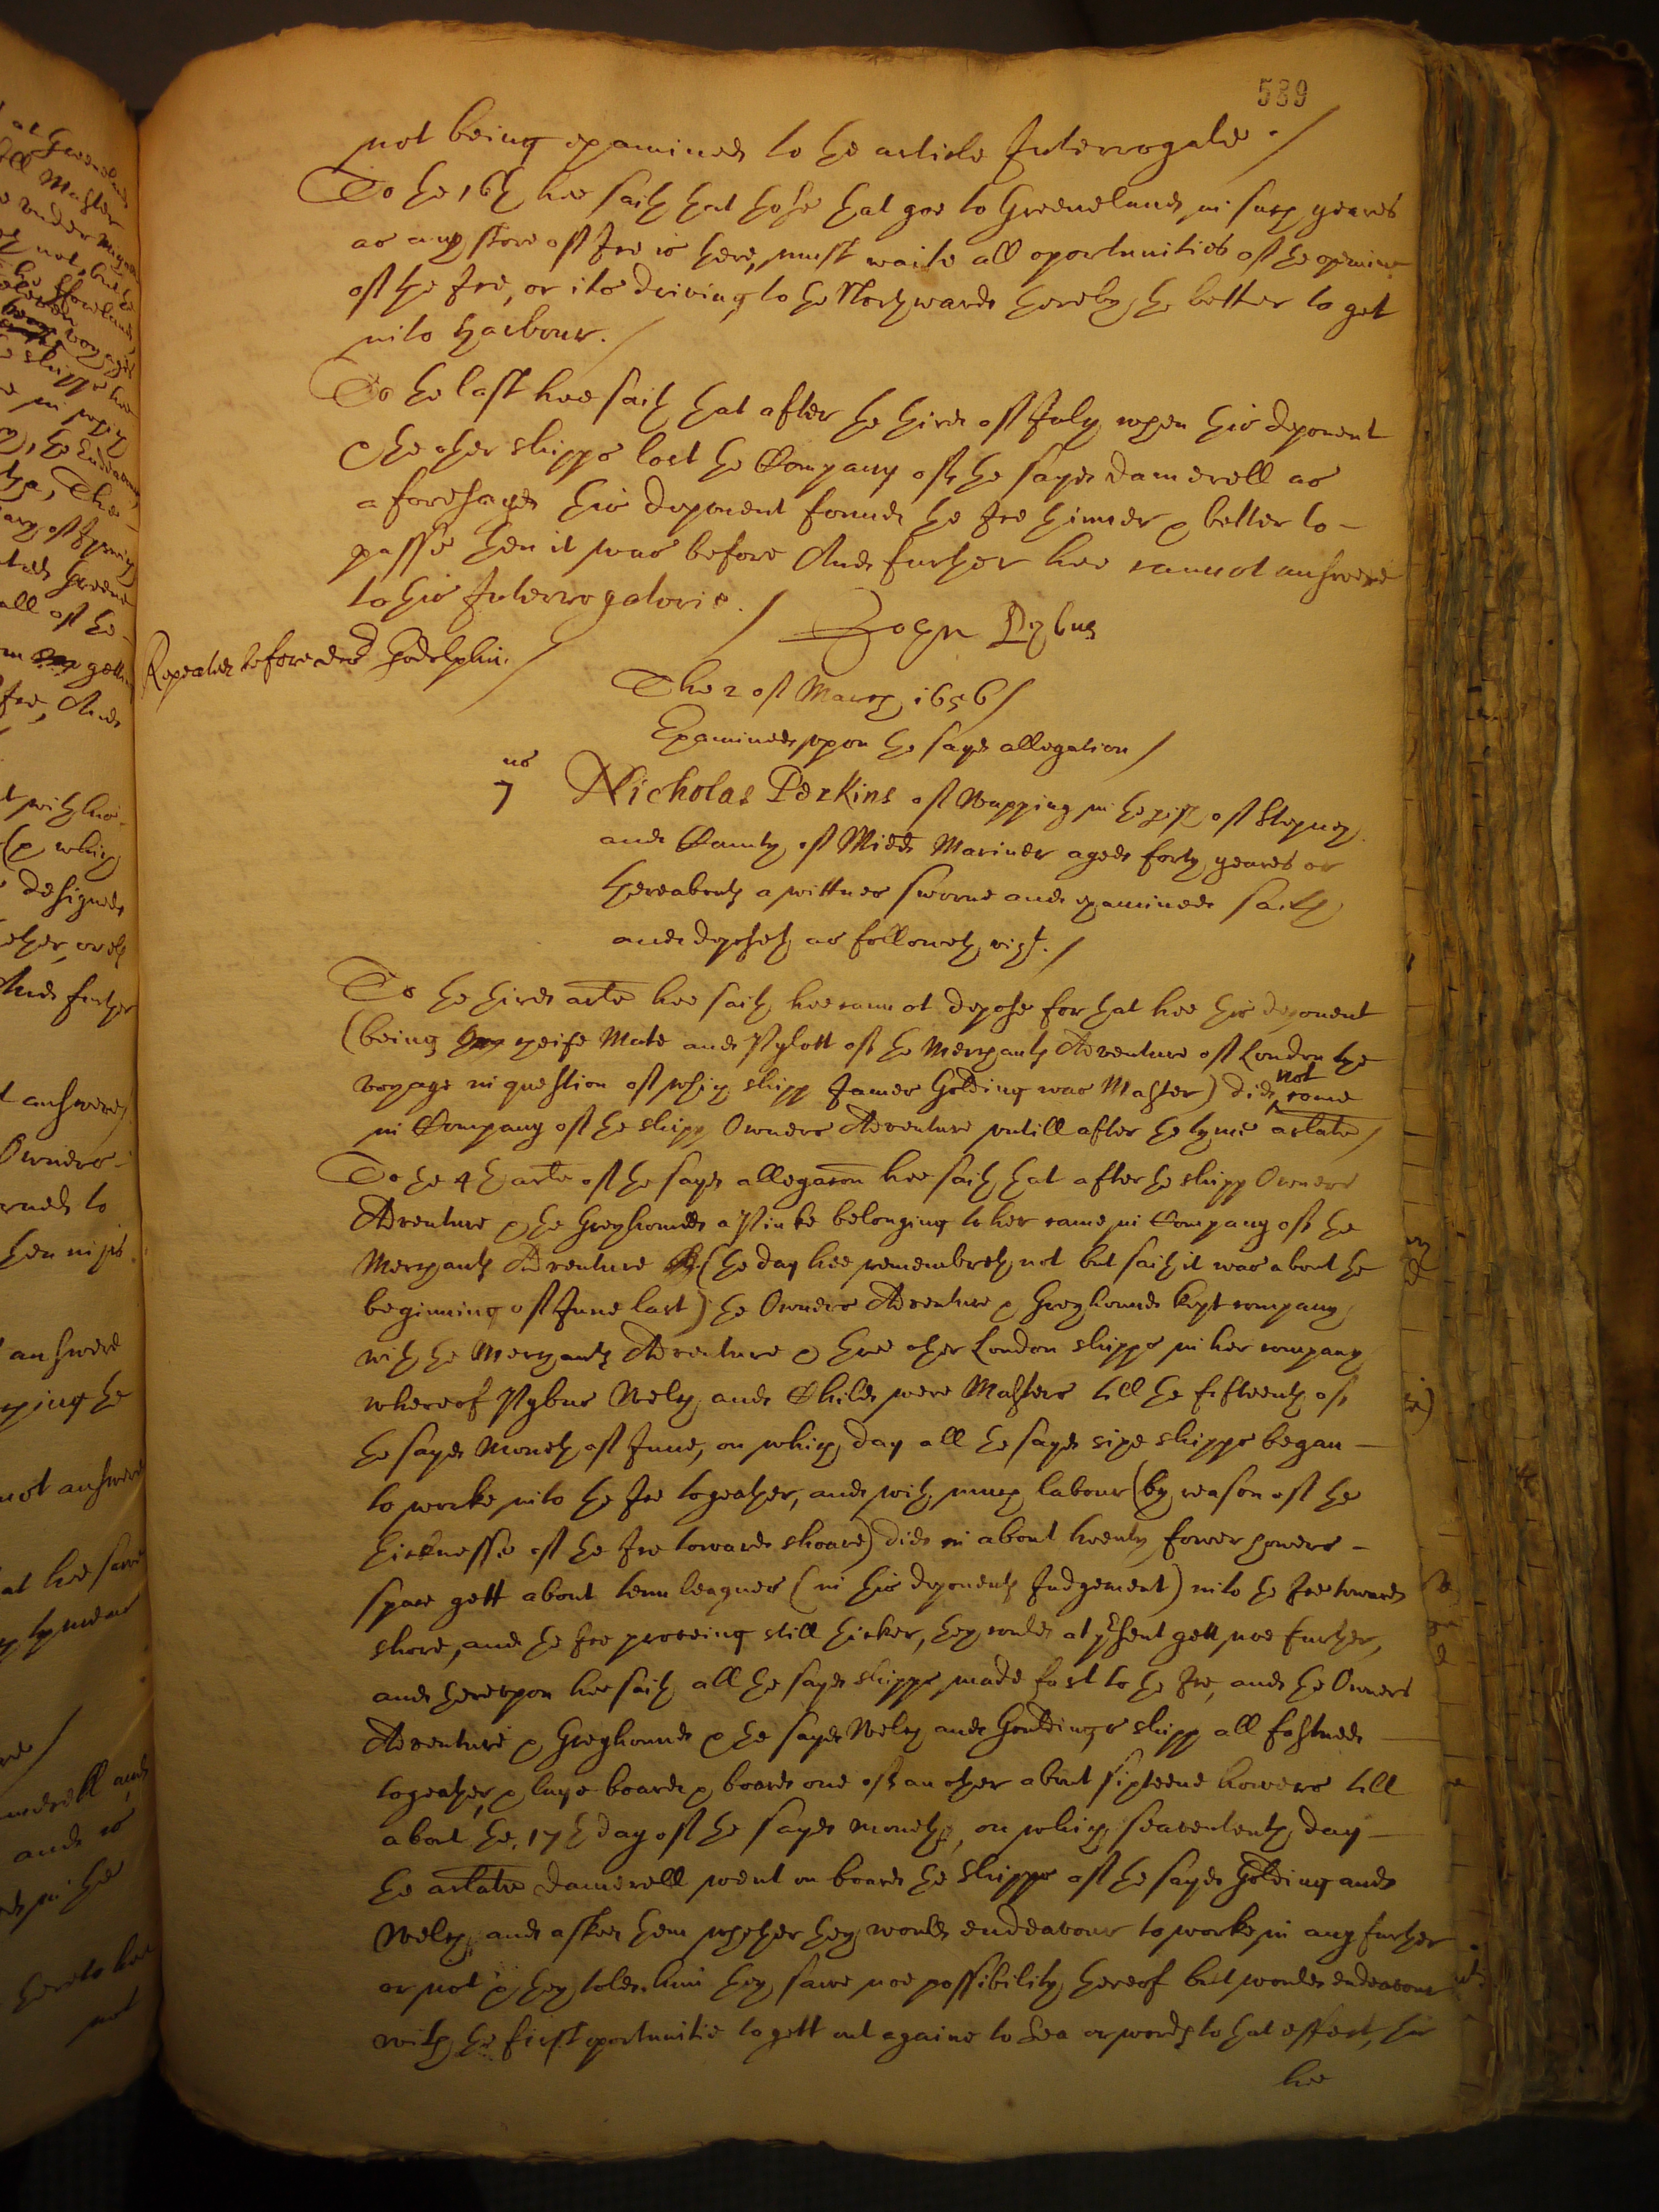 589
not being examined to the article Interrogate ./
To the 16th hee saith that those that goe to Greeneland, in such yeares
as any store of Ice is there, must waite all oportunities of the opening
of the Ice, or its driving to the Northwards thereby the better to get
into harbour. /
To the last hee saith that after the third of July when this deponent
& the other shipps lost the Company of the sayd Damerell as
aforesayd this deponent found the Ice thinner & better to -
passe then it was before And further hee cannot answere
to this Interrogatorie. /
John Pybus
Repeated before doctor Godolphin. /
The 2 of March 1656 /
Examined upon the sayd allegation /
us
7 Nicholas Perkins of Wapping in the pish of Stepney
and County of Middx Mariner aged forty yeares or
thereabouts a wittnes sworne and examined saith
and deposeth as followeth vizt. /
To the third arte hee saith hee cannot depose for that hee this deponent
(being cheife Mate and Pylott of the Merchants Adventure of London the
voyage in question of which shipp James Golding was Master) did not come
in Company of the shipp Owners Adventure untill after the tyme arlate /
To the 4th arte of the sayd allegaon hee saith that after the shipp Owners
Adventure & the Greyhound a Pinke belonging to her came in Company of the
Merchants Adventure (the day hee remembreth not but saith it was about the
beginning of June last) the Owners Adventure & Greyhound kept company
with the Merchants Adventure & three other London shipps in her company
whereof Pybus Welch and Child were Masters till the fifteenth of
the sayd Moneth of June, on which day all the sayd sixe shipps began -
to worke into the Ice togeather, and with much labour (by reason of the
thicknesse of the Ice towards shoare) did in about twenty fower howers -
space gett about tenn leagues (in this deponents Judgement) into the Ice towards
shore, and the Ice prooving still thicker, they could at psent gett noe further,
and thereupon hee saith all the sayd shipps made fast to the Ice, and the Owners
Adventure & Greyhound & the sayd Welch and Gouldings shipp all fastned
togeather, & laye board & board one of an other about sixteene howers till
about the 17th day of the sayd moneth, on which seavententh day -
the arlate Damerell went on board the shipps of the sayd Golding and
Welch, and asked them whether they would endeavour to worke in any further
or not & they told him they sawe noe possibility thereof but would endeavour
with the first oportunitie to gett out againe to Sea or words to that effect, this
hee